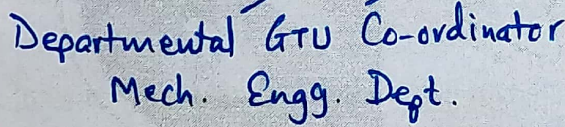 Departmental GTU Co-ordinator
Mech. Engg. Dept.